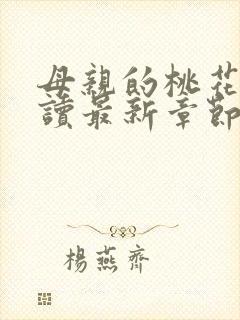 母親的桃花
讀最新章節
楊燕齊